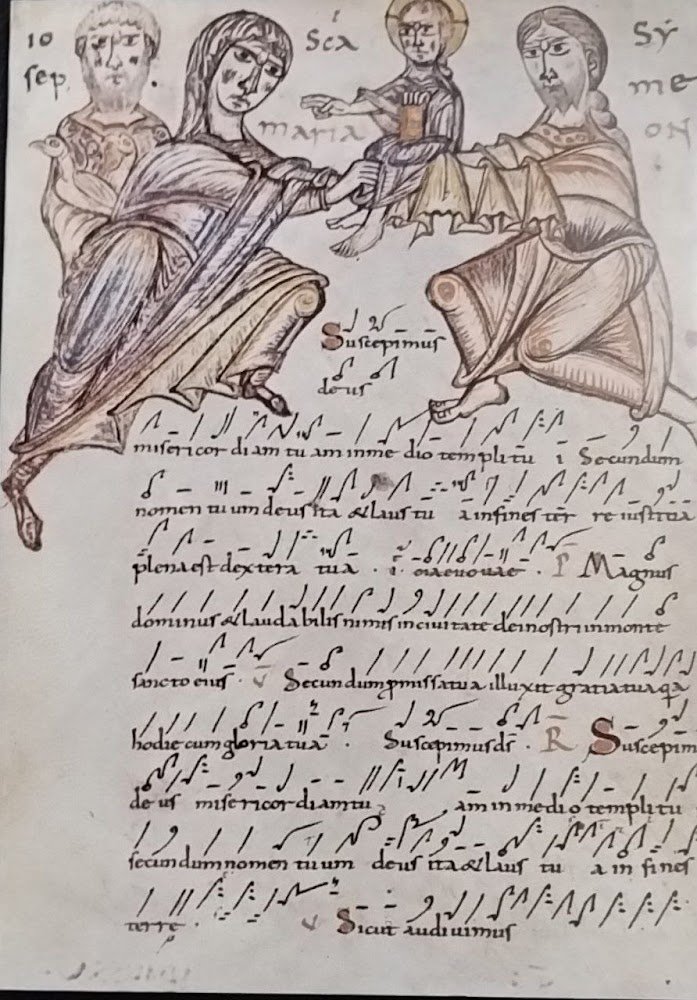 IO
sep
Sca
maria
SÝ
me
ON
Suscepimus
deus
misericordiam tuam inmedio templi tui Secundum
nomen tuum deus ita & laus tua infines terre iustitia
plena est dextera tua. euouae. P Magnus
dominus & laudabilis nimis in ciuitate dei nostri inmonte
sancto eius. V Secundum promissa tua illuxit gratia tua qa
hodie cum gloria tua. Suscepimus ds. R Suscepim
deus misericordiam tuam inmedio templi tu
secundum nomen tuum deus ita & laus tua infines
terre. V Sicut audiuimus